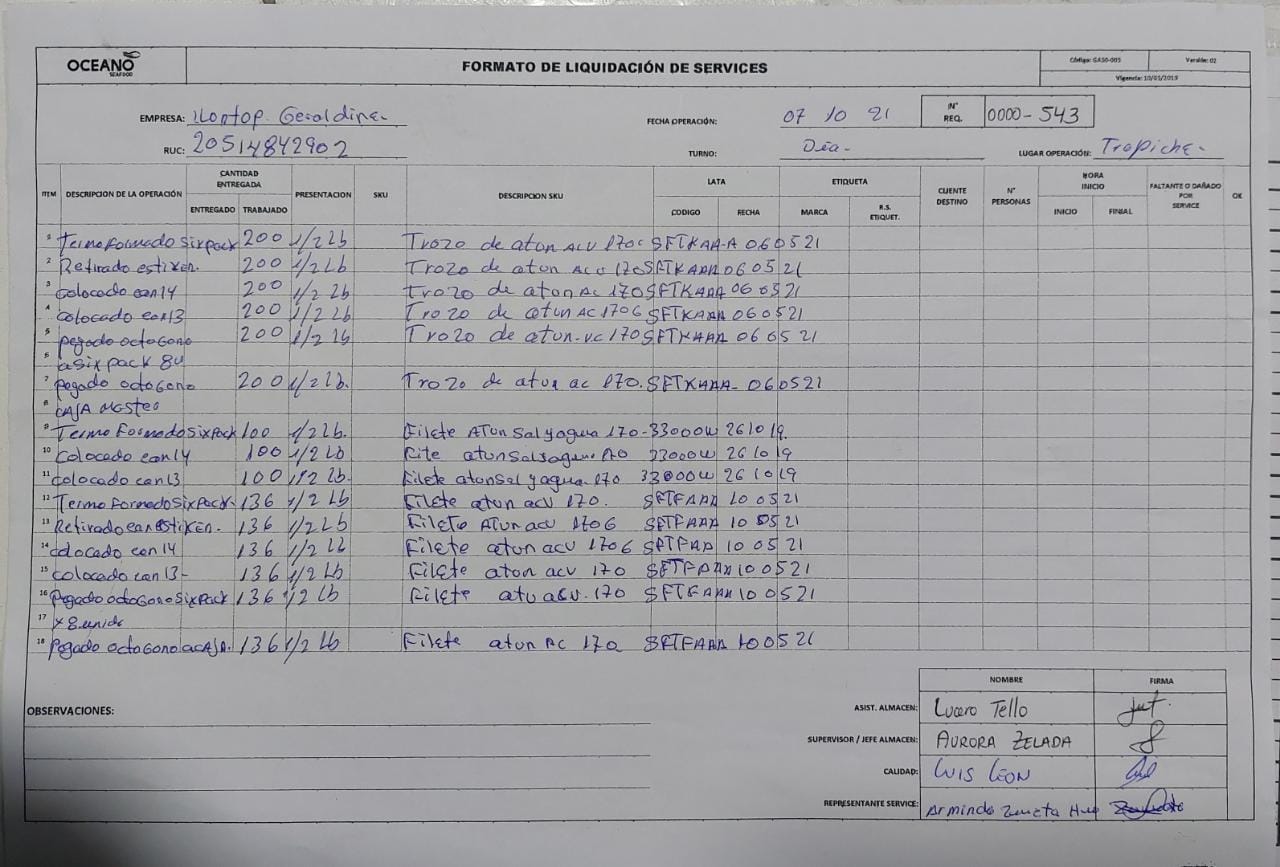 OCEANO
SEAFOOD
FORMATO DE LIQUIDACIÓN DE SERVICES
Código: GASO-005 Versión: 02
Vigencia: 10/01/2019
EMPRESA: Llontop. Geraldine.
FECHA OPERACIÓN: 07 10 21
N° REQ. 0000-543
RUC: 20514842902
TURNO: Día-
LUGAR OPERACIÓN: Trapiche-
ITEM DESCRIPCION DE LA OPERACIÓN CANTIDAD ENTREGADA ENTREGADO TRABAJADO PRESENTACION SKU DESCRIPCION SKU LATA CODIGO FECHA ETIQUETA MARCA R.S. ETIQUET. CLIENTE DESTINO N° PERSONAS HORA INICIO INICIO FINIAL FALTANTE O DAÑADO POR SERVICE OK
1 Termo Formado sixpack 200 1/2 Lb Trozo de atun ACV 170G SFTKAA-A 060521
2 Retirado estixen. 200 1/2 Lb Trozo de atun ACV 170 SFTKAAA 060521
3 Colocado ean14 200 1/2 Lb Trozo de atun AC 170 SFTKAAA 060521
4 Colocado ean13 200 1/2 Lb Trozo de atun AC 170G SFTKAAA 060521
5 pegado octogono 200 1/2 lb Trozo de atun-VC 170 SFTKAAA 060521
6 asixpack 8U
7 pegado octogono 200 1/2 Lb. Trozo de atun ac 170. SFTKAAA- 060521
8 CAJA Master
9 Termo Formado sixpack 100 1/2 Lb. Filete ATun sal y agua 170-33000W 261019.
10 Colocado ean14 100 1/2 Lb atun sal 170 33000W 261019
11 Colocado ean13 100 1/2 Lb. Filete atun sal y agua 170 33000W 261019
12 Termo Formado SixPack. 136 1/2 Lb Filete atun acv 170. SFTFAAA 100521
13 Retirado ean 136 1/2 Lb Filete ATun acv 170G SFTFAAA 100521
14 Colocado ean14 136 1/2 Lb Filete atun acv 170G SFTFAA 100521
15 Colocado ean13- 136 1/2 Lb Filete aton acv 170 SFTFAAA 100521
16 Pegado octogono sixpack 136 1/2 Lb Filete atu acv. 170 SFTFAAA 100521
17 x 8 unid
18 Pegado octogono aCAJA. 136 1/2 Lb Filete atun AC 170 SFTFAAA 100521
NOMBRE FIRMA
OBSERVACIONES:
ASIST. ALMACEN: Lucero Tello
SUPERVISOR / JEFE ALMACEN: AURORA ZELADA
CALIDAD: LUIS LEON
REPRESENTANTE SERVICE: Armindo